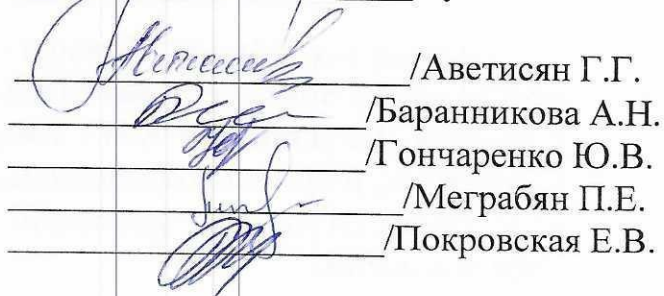 /Аветисян Г.Г.
/Баранникова А.Н.
/Гончаренко Ю.В.
/Меграбян П.Е.
/Покровская Е.В.